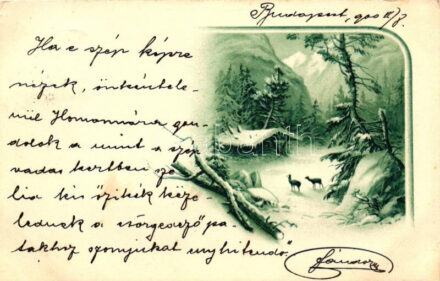 Budapest, 900 II/8.
Ha e szép képre
nézek, önkéntele-
nül Homonnára gon-
dolok a mint a szép
vadas kertben sze-
lid kis őzikék köze
lednek a csörgedező pa-
takhoz szomjukat enyhitendő.
Sándor